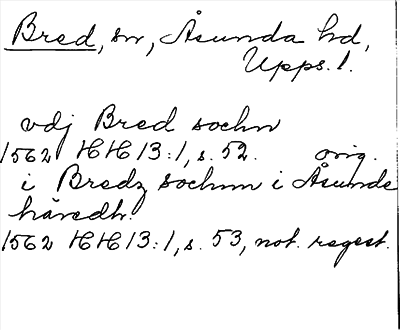 Bred, sn, Åsunda hd,
Upps. l.
vdj Bred sochn
1562 HH 13:1, s. 52. orig.
i Bredz sochnn i Åsunde
häredh.
1562 HH 13:1, s. 53, not. regest.